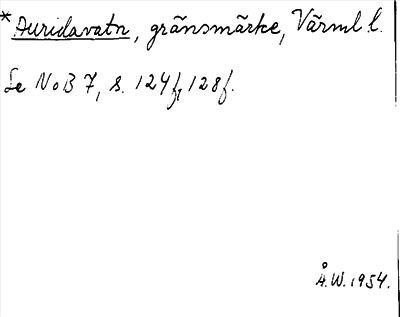 *Auridavatn, gränsmärke, Värml l.
Se NoB 7, s. 124f, 128f.
Å.W. 1954.